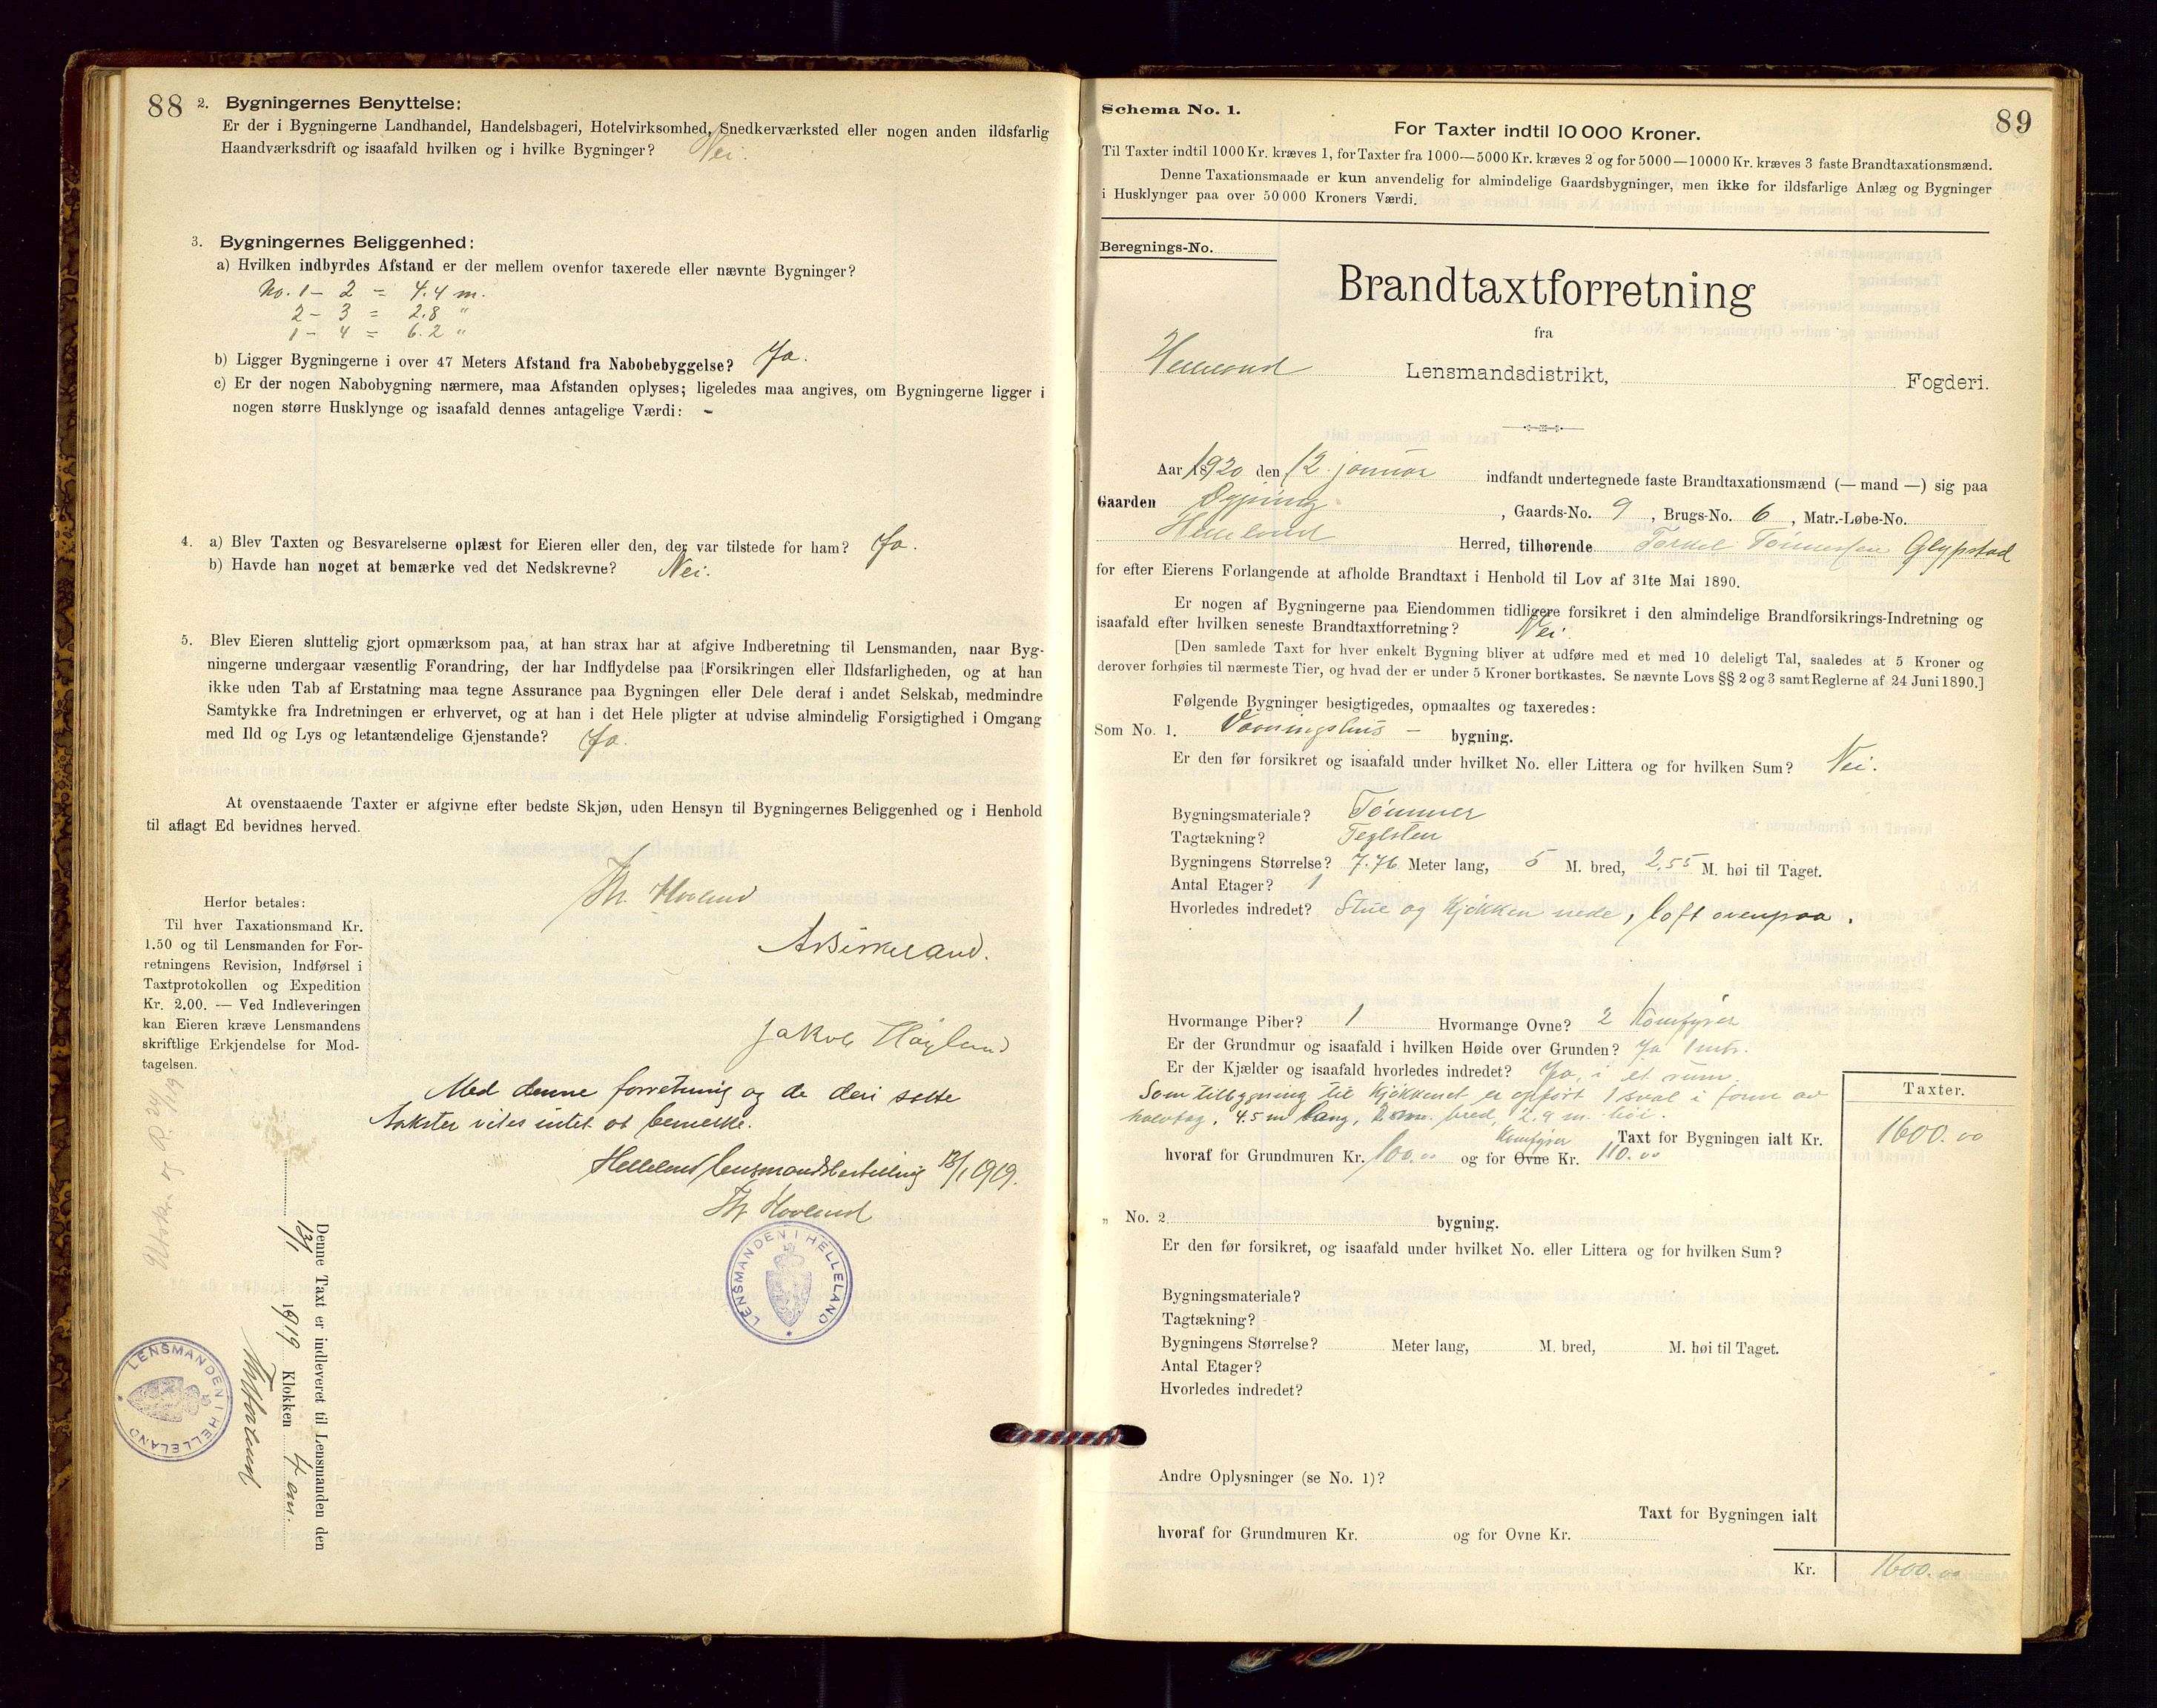 88
2. Bygningernes Benyttelse:
Er der i Bygningerne Landhandel, Handelsbageri, Hotelvirksomhed, Snedkerværksted eller nogen anden ildsfarlig
Haandværksdrift og isaafald hvilken og i hvilke Bygninger? Nei.
3. Bygningernes Beliggenhed:
a) Hvilken indbyrdes Afstand er der mellem ovenfor taxerede eller nævnte Bygninger?
No. 1 - 2 = 4.4 m.
2 - 3 = 2.8 "
1 - 4 = 6.2 "
b) Ligger Bygningerne i over 47 Meters Afstand fra Nabobebyggelse? Ja.
c) Er der nogen Nabobygning nærmere, maa Afstanden oplyses; ligeledes maa angives, om Bygningerne ligger i
nogen større Husklynge og isaafald dennes antagelige Værdi: -
4. a) Blev Taxten og Besvarelserne oplæst for Eieren eller den, der var tilstede for ham? Ja.
b) Havde han noget at bemærke ved det Nedskrevne? Nei.
5. Blev Eieren sluttelig gjort opmærksom paa, at han strax har at afgive Indberetning til Lensmanden, naar Byg-
ningerne undergaar væsentlig Forandring, der har Indflydelse paa Forsikringen eller Ildsfarligheden, og at han
ikke uden Tab af Erstatning maa tegne Assurance paa Bygningen eller Dele deraf i andet Selskab, medmindre
Samtykke fra Indretningen er erhvervet, og at han i det Hele pligter at udvise almindelig Forsigtighed i Omgang
med Ild og Lys og letantændelige Gjenstande? Ja.
At ovenstaaende Taxter er afgivne efter bedste Skjøn, uden Hensyn til Bygningernes Beliggenhed og i Henhold
til aflagt Ed bevidnes herved.
Th. Hovland
A Birkeland.
Jakob Høyland
Herfor betales:
Til hver Taxationsmand Kr.
1.50 og til Lensmanden for For-
retningens Revision, Indførsel i
Taxtprotokollen og Expedition
Kr. 2.00. — Ved Indleveringen
kan Eieren kræve Lensmandens
skriftlige Erkjendelse for Mod-
tagelsen.
Med denne forretning og de deri satte
takster vites intet at bemerke.
Helleland lensmandsbestilling 13/1 1919.
Th. Hovland
LENSMANDEN I HELLELAND
Denne Taxt er indleveret til Lensmanden den
13/1 1919 Klokken 4 em.
Th Hovland
LENSMANDEN I HELLELAND
89
Schema No. 1.
For Taxter indtil 10 000 Kroner.
Til Taxter indtil 1000 Kr. kræves 1, for Taxter fra 1000—5000 Kr. kræves 2 og for 5000—10000 Kr. kræves 3 faste Brandtaxationsmænd.
Denne Taxationsmaade er kun anvendelig for almindelige Gaardsbygninger, men ikke for ildsfarlige Anlæg og Bygninger
i Husklynger paa over 50 000 Kroners Værdi.
Beregnings-No.
Brandtaxtforretning
fra
Helleland Lensmandsdistrikt, Fogderi.
Aar 1920 den 12 januar indfandt undertegnede faste Brandtaxationsmænd (— mand —) sig paa
Gaarden , Gaards-No. 9 , Brugs-No. 6 , Matr.-Løbe-No.
Helleland Herred, tilhørende Torkel Tønnessen Glypstad
for efter Eierens Forlangende at afholde Brandtaxt i Henhold til Lov af 31te Mai 1890.
Er nogen af Bygningerne paa Eiendommen tidligere forsikret i den almindelige Brandforsikrings-Indretning og
isaafald efter hvilken seneste Brandtaxtforretning? Nei.
[Den samlede Taxt for hver enkelt Bygning bliver at udføre med et med 10 deleligt Tal, saaledes at 5 Kroner og
derover forhøies til nærmeste Tier, og hvad der er under 5 Kroner bortkastes. Se nævnte Lovs §§ 2 og 3 samt Reglerne af 24 Juni 1890.]
Følgende Bygninger besigtigedes, opmaaltes og taxeredes:
Som No. 1. Vaaningshus - bygning.
Er den før forsikret og isaafald under hvilket No. eller Littera og for hvilken Sum? Nei.
Bygningsmateriale? Tømmer
Tagtækning? Teglsten
Bygningens Størrelse? 7.76 Meter lang, 5 M. bred, 2,55 M. høi til Taget.
Antal Etager? 1
Hvorledes indredet? Stue og kjøkken nede, loft ovenpaa.
Hvormange Piber? 1 Hvormange Ovne? 2 Komfyrer
Er der Grundmur og isaafald i hvilken Høide over Grunden? Ja 1 mtr.
Er der Kjælder og isaafald hvorledes indredet? Ja, i et rum.
Som tilbygning til kjøkkenet er opført 1 sval i form av
halvtag. 4.5 m lang, bred, 2.9 m. høi.
Taxter.
Taxt for Bygningen ialt Kr. 1600.00
Komfyrer
hvoraf for Grundmuren Kr. 100.00 og for Ovne Kr. 110.00
" No. 2 bygning.
Er den før forsikret, og isaafald under hvilket No. eller Littera og for hvilken Sum?
Bygningsmateriale?
Tagtækning?
Bygningens Størrelse? Meter lang, M. bred, M. høi til Taget.
Antal Etager?
Hvorledes indredet?
Andre Oplysninger (se No. 1)?
Taxt for Bygningen ialt
hvoraf for Grundmuren Kr. og for Ovne Kr.
Kr. 1600.00